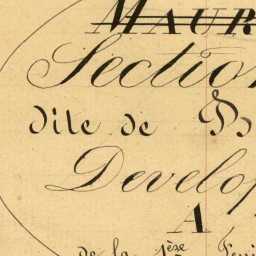 MAUR
Section
dite de B
Develop
A
de la 1ère feui